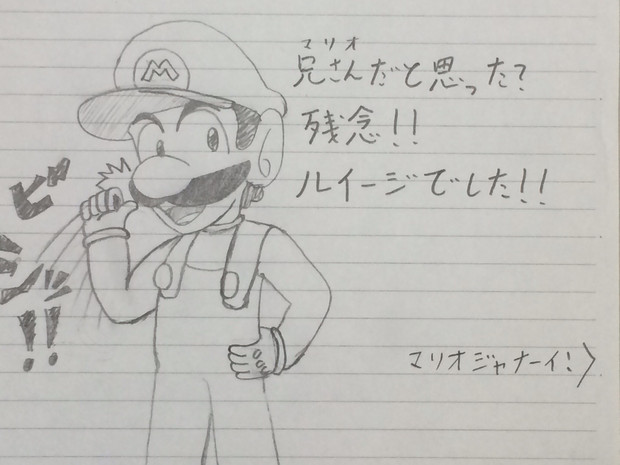 マリオ
兄さんだと思った?
残念!!
ルイージでした!!
M
ビシッ!!
マリオジャナーイ!